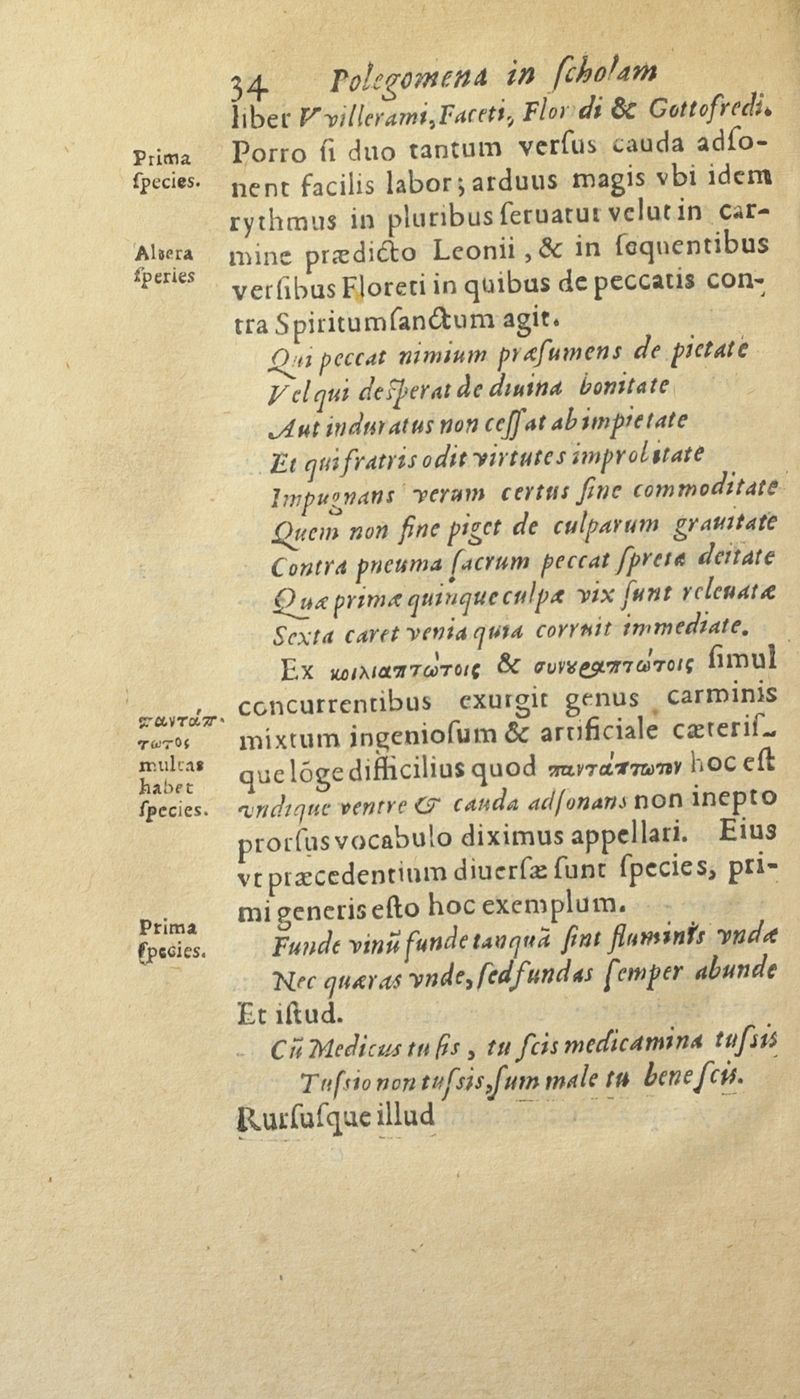 34 Polegomena in ſcholam
liber Vvillerami, Faceti, Flor di & Gottofredi.
Prima
ſpecies.
Porro ſi duo tantum verſus cauda adſo-
nent facilis labor; arduus magis vbi idem
rythmus in pluribus ſeruatur velut in car-
Altera
ſperies
mine prædicto Leonii, & in ſequentibus
verſibus Floreti in quibus de peccatis con-
tra Spiritumſanctum agit.
Qui peccat nimium præſumens de pietate
Vel qui deſperat de diuina bonitate
Aut induratus non ceſſat ab impietate
Et qui fratris odit virtutes improbitate
Impugnans verum certus ſine commoditate
Quem non ſine piget de culparum grauitate
Contra pneuma ſacrum peccat ſpreta deitate
Quæ primæ quinque culpæ vix ſunt releuatæ
Sexta caret venia quia corruit immediate.
Ex κοιλιαπτώτοις & συνκραπτώτοις ſimul
concurrentibus exurgit genus carminis
πανταπ-
τωτος
multas
habet
ſpecies.
mixtum ingenioſum & artificiale cæteriſ-
que lõge difficilius quod πανταπτωτον hoc eſt
vndique ventre & cauda adſonans non inepto
prorſus vocabulo diximus appellari. Eius
vt præcedentium diuerſæ ſunt ſpecies, pri-
mi generis eſto hoc exemplum.
Prima
ſpecies.
Funde vinũ funde tanquã ſint fluminis vndæ
Nec quæras vnde, ſed fundas ſemper abunde
Et iſtud.
Cũ Medicus tu ſis, tu ſcis medicamina tuſsis
Tuſsio non tuſsis, ſum male tu bene ſcis.
Rurſuſque illud